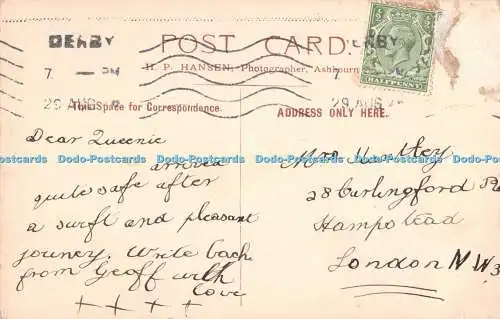 DERBY
7. — PM
29 AUG
POST CARD
DERBY
H. P. HANSEN, Photographer, Ashbourn
This Space for Correspondence.
29 AUG
ADDRESS ONLY HERE.
HALFPENNY
Dear Queenie
arrived
quite safe after
a swift and pleasant
jouney. Write back
from Geoff with
love
++++
Mrs Hartley
28 Curlingford Rd
Hampstead
London N.W.3
Dodo-Postcards Dodo-Postcards Dodo-Postcards Dodo-Postcards Dodo-Postcards